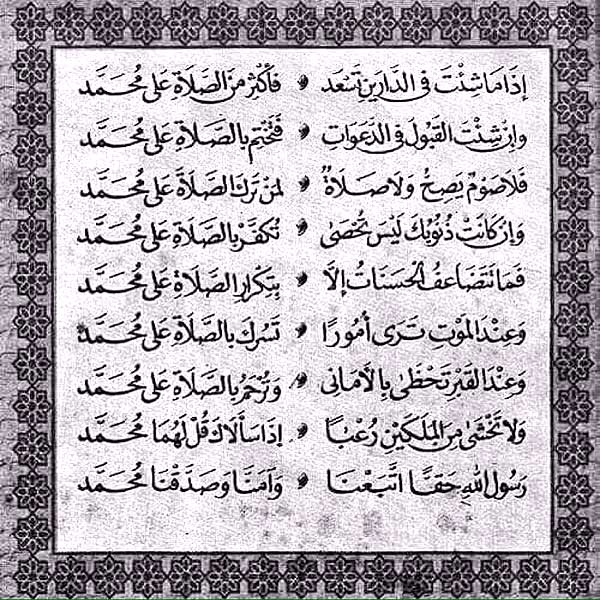 إِذَا مَا شِئْتَ فِي الدَّارَيْنِ تَسْعَد * فَأَكْثِرْ مِنَ الصَّلَاةِ عَلَى مُحَمَّد
وَإِنْ شِئْتَ القَبُولَ فِي الدَّعَوَاتِ * فَخْتِمْ بِالصَّلَاةِ عَلَى مُحَمَّد
فَلَا صَوْمٌ يَصِحُّ وَلَا صَلَاةٌ * لِمَنْ تَرَكَ الصَّلَاةَ عَلَى مُحَمَّد
وَإِنْ كَانَتْ ذُنُوبُكَ لَيْسَ تُحْصَى * تُكَفَّرْ بِالصَّلَاةِ عَلَى مُحَمَّد
فَمَا تَتَضَاعَفُ الْحَسَنَاتُ إِلَّا * بِتِكْرَارِ الصَّلَاةِ عَلَى مُحَمَّد
وَعِنْدَ المَوْتِ تَرَى أُمُورًا * تَسُرُّكَ بِالصَّلَاةِ عَلَى مُحَمَّد
وَعِنْدَ القَبْرِ تَحْظَى بِالأَمَانِي * وَتُرْحَمُ بِالصَّلَاةِ عَلَى مُحَمَّد
وَلَا تَخْشَى مِنَ المَلَكَيْنِ رُعْبًا * إِذَا سَأَلَاكَ قُلْ لَهُمَا مُحَمَّد
رَسُولُ اللهِ حَقًّا اتَّبَعْنَا * وَآمَنَّا وَصَدَّقْنَا مُحَمَّد